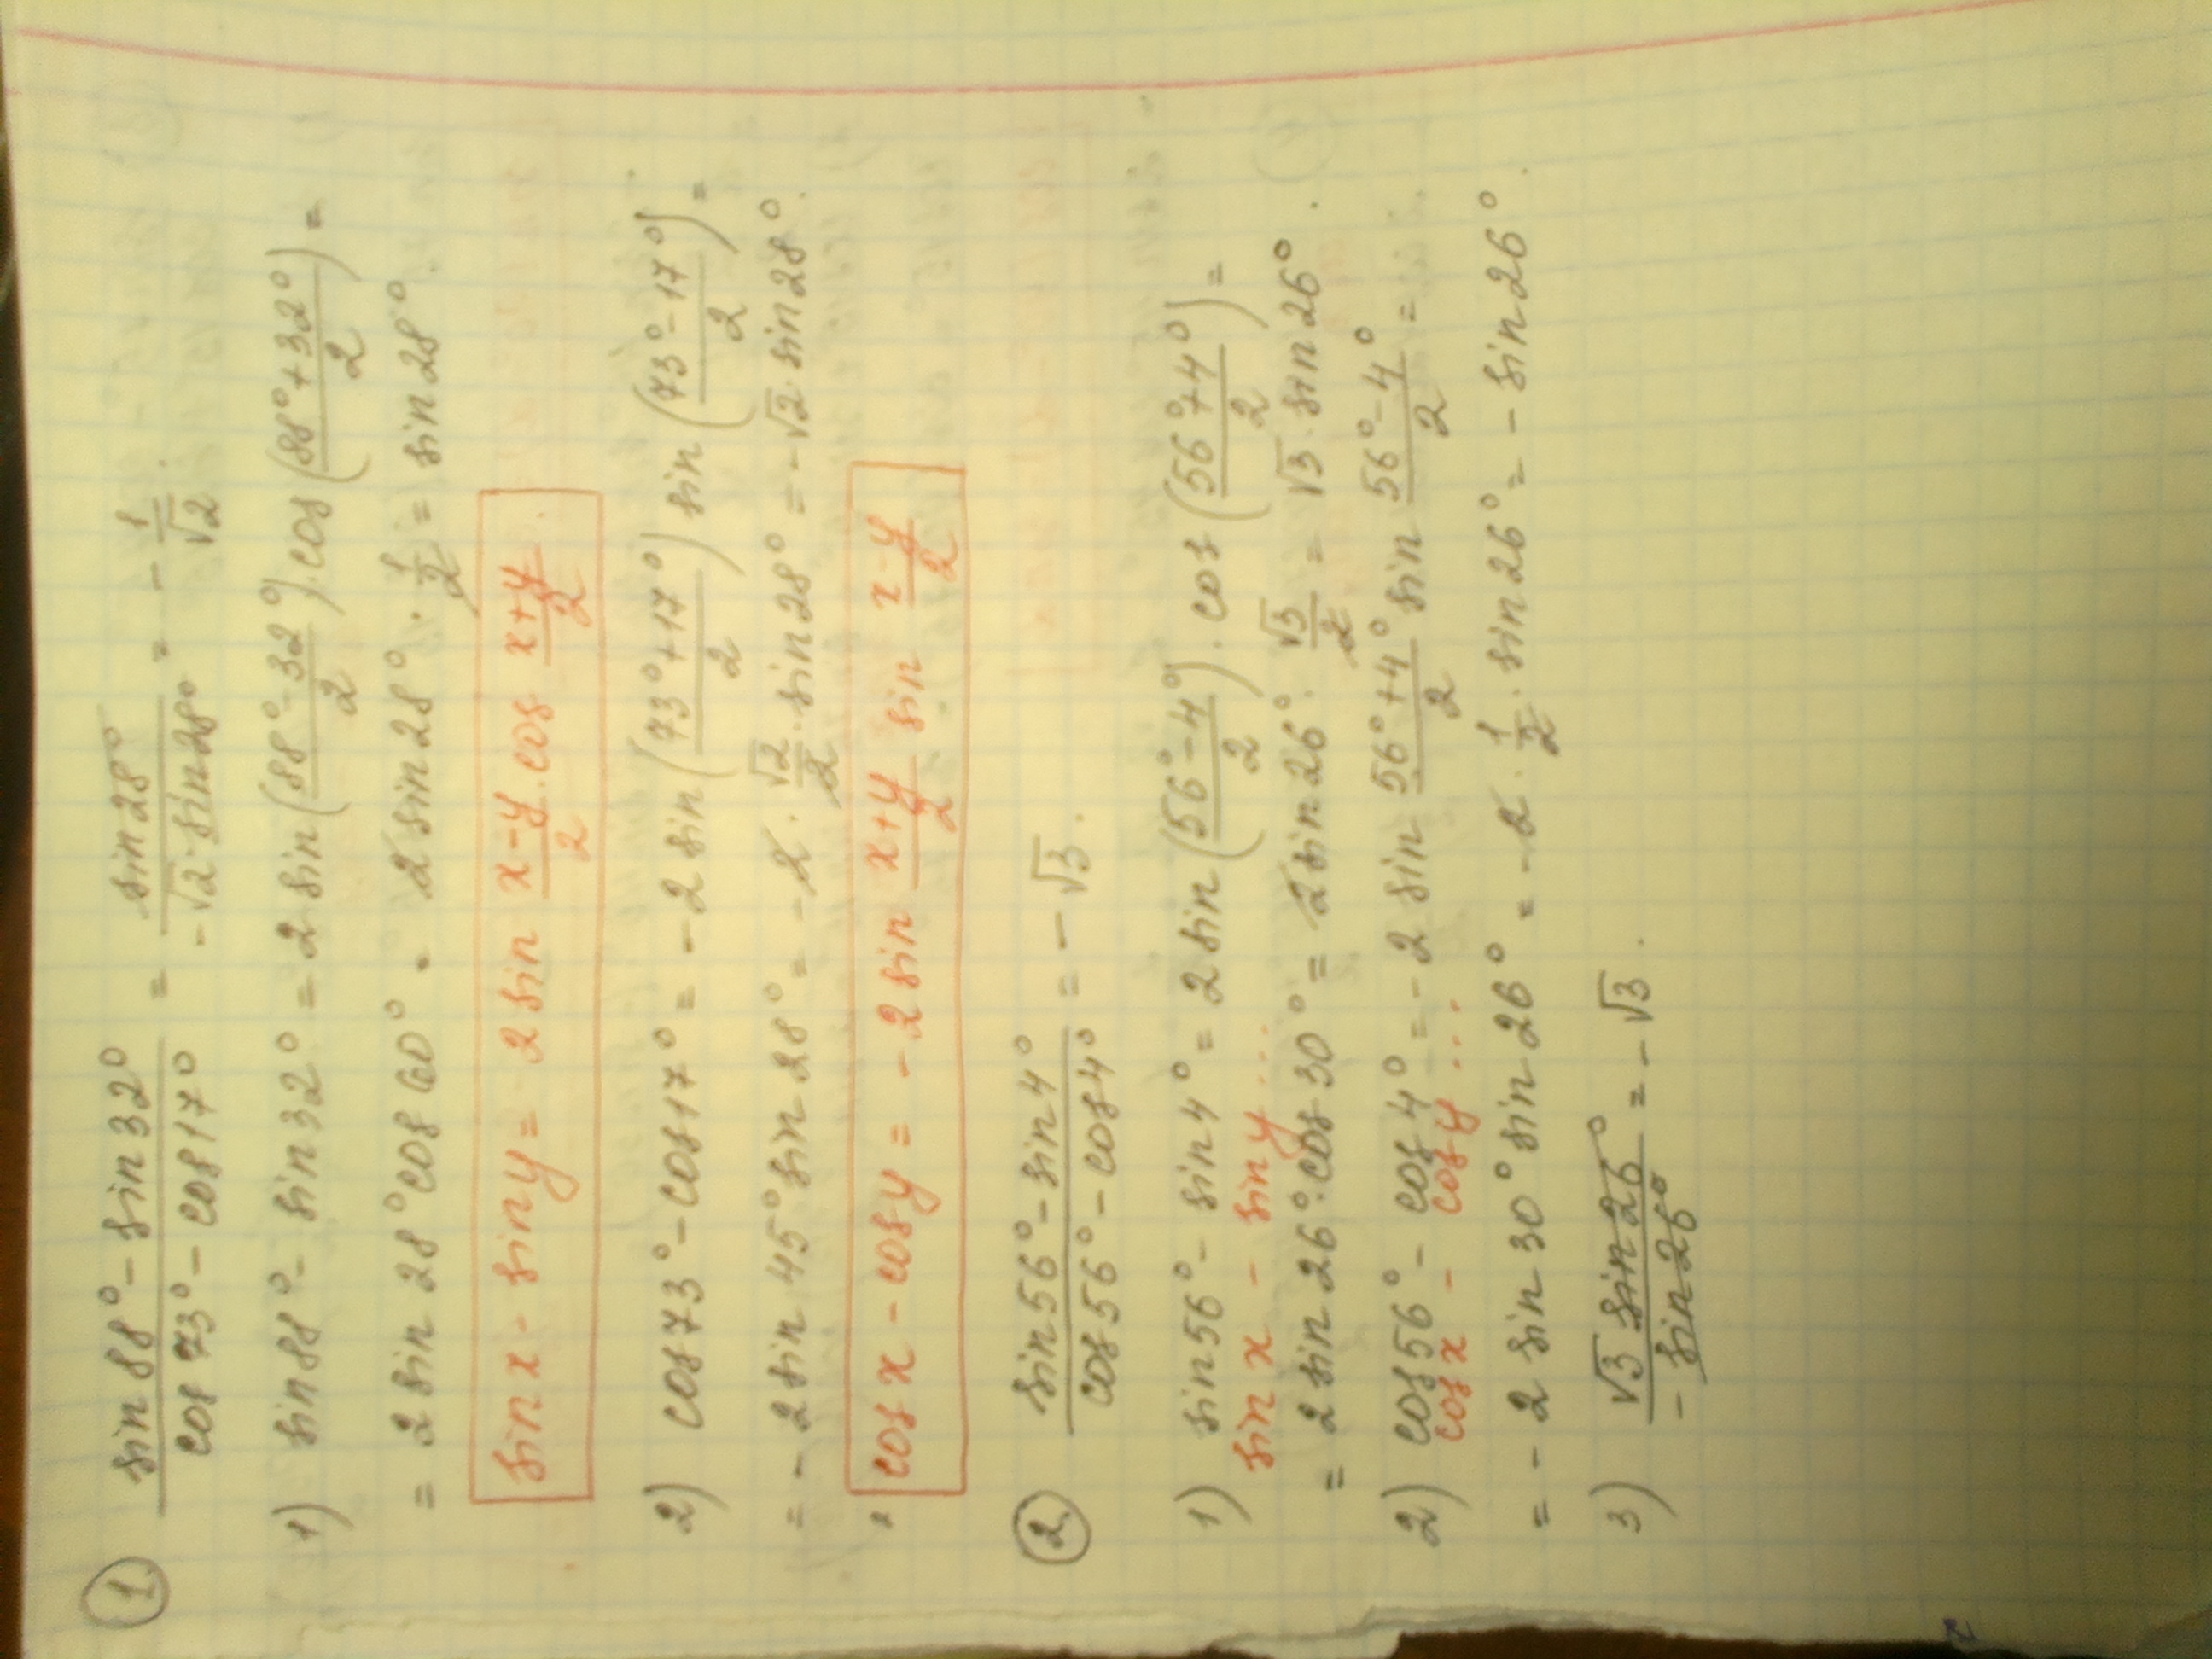 ① (sin 88° − sin 32°)/(cos 73° − cos 17°) = sin 28°/(−√2 · sin 28°) = − 1/√2.
1) sin 88° − sin 32° = 2 sin ((88° − 32°)/2) · cos ((88° + 32°)/2) =
= 2 sin 28° cos 60° · 2 sin 28° · 1/2 = sin 28°.
sin x − sin y = 2 sin (x−y)/2 · cos (x+y)/2.
2) cos 73° − cos 17° = − 2 sin ((73° + 17°)/2) sin ((73° − 17°)/2) =
= − 2 sin 45° sin 28° = − 2 · √2/2 · sin 28° = − √2 · sin 28°.
cos x − cos y = − 2 sin (x+y)/2 sin (x−y)/2
② (sin 56° − sin 4°)/(cos 56° − cos 4°) = − √3.
1) sin 56° − sin 4° = 2 sin ((56° − 4°)/2) · cos ((56° + 4°)/2) =
sin x − sin y ....
= 2 sin 26° · cos 30° = 2 sin 26° · √3/2 = √3 · sin 26°.
2) cos 56° − cos 4° = − 2 sin (56° + 4°)/2 sin (56° − 4°)/2 =
cos x − cos y ....
= − 2 sin 30° sin 26° = − 2 · 1/2 · sin 26° = − sin 26°.
3) √3 sin 26°/(− sin 26°) = − √3.